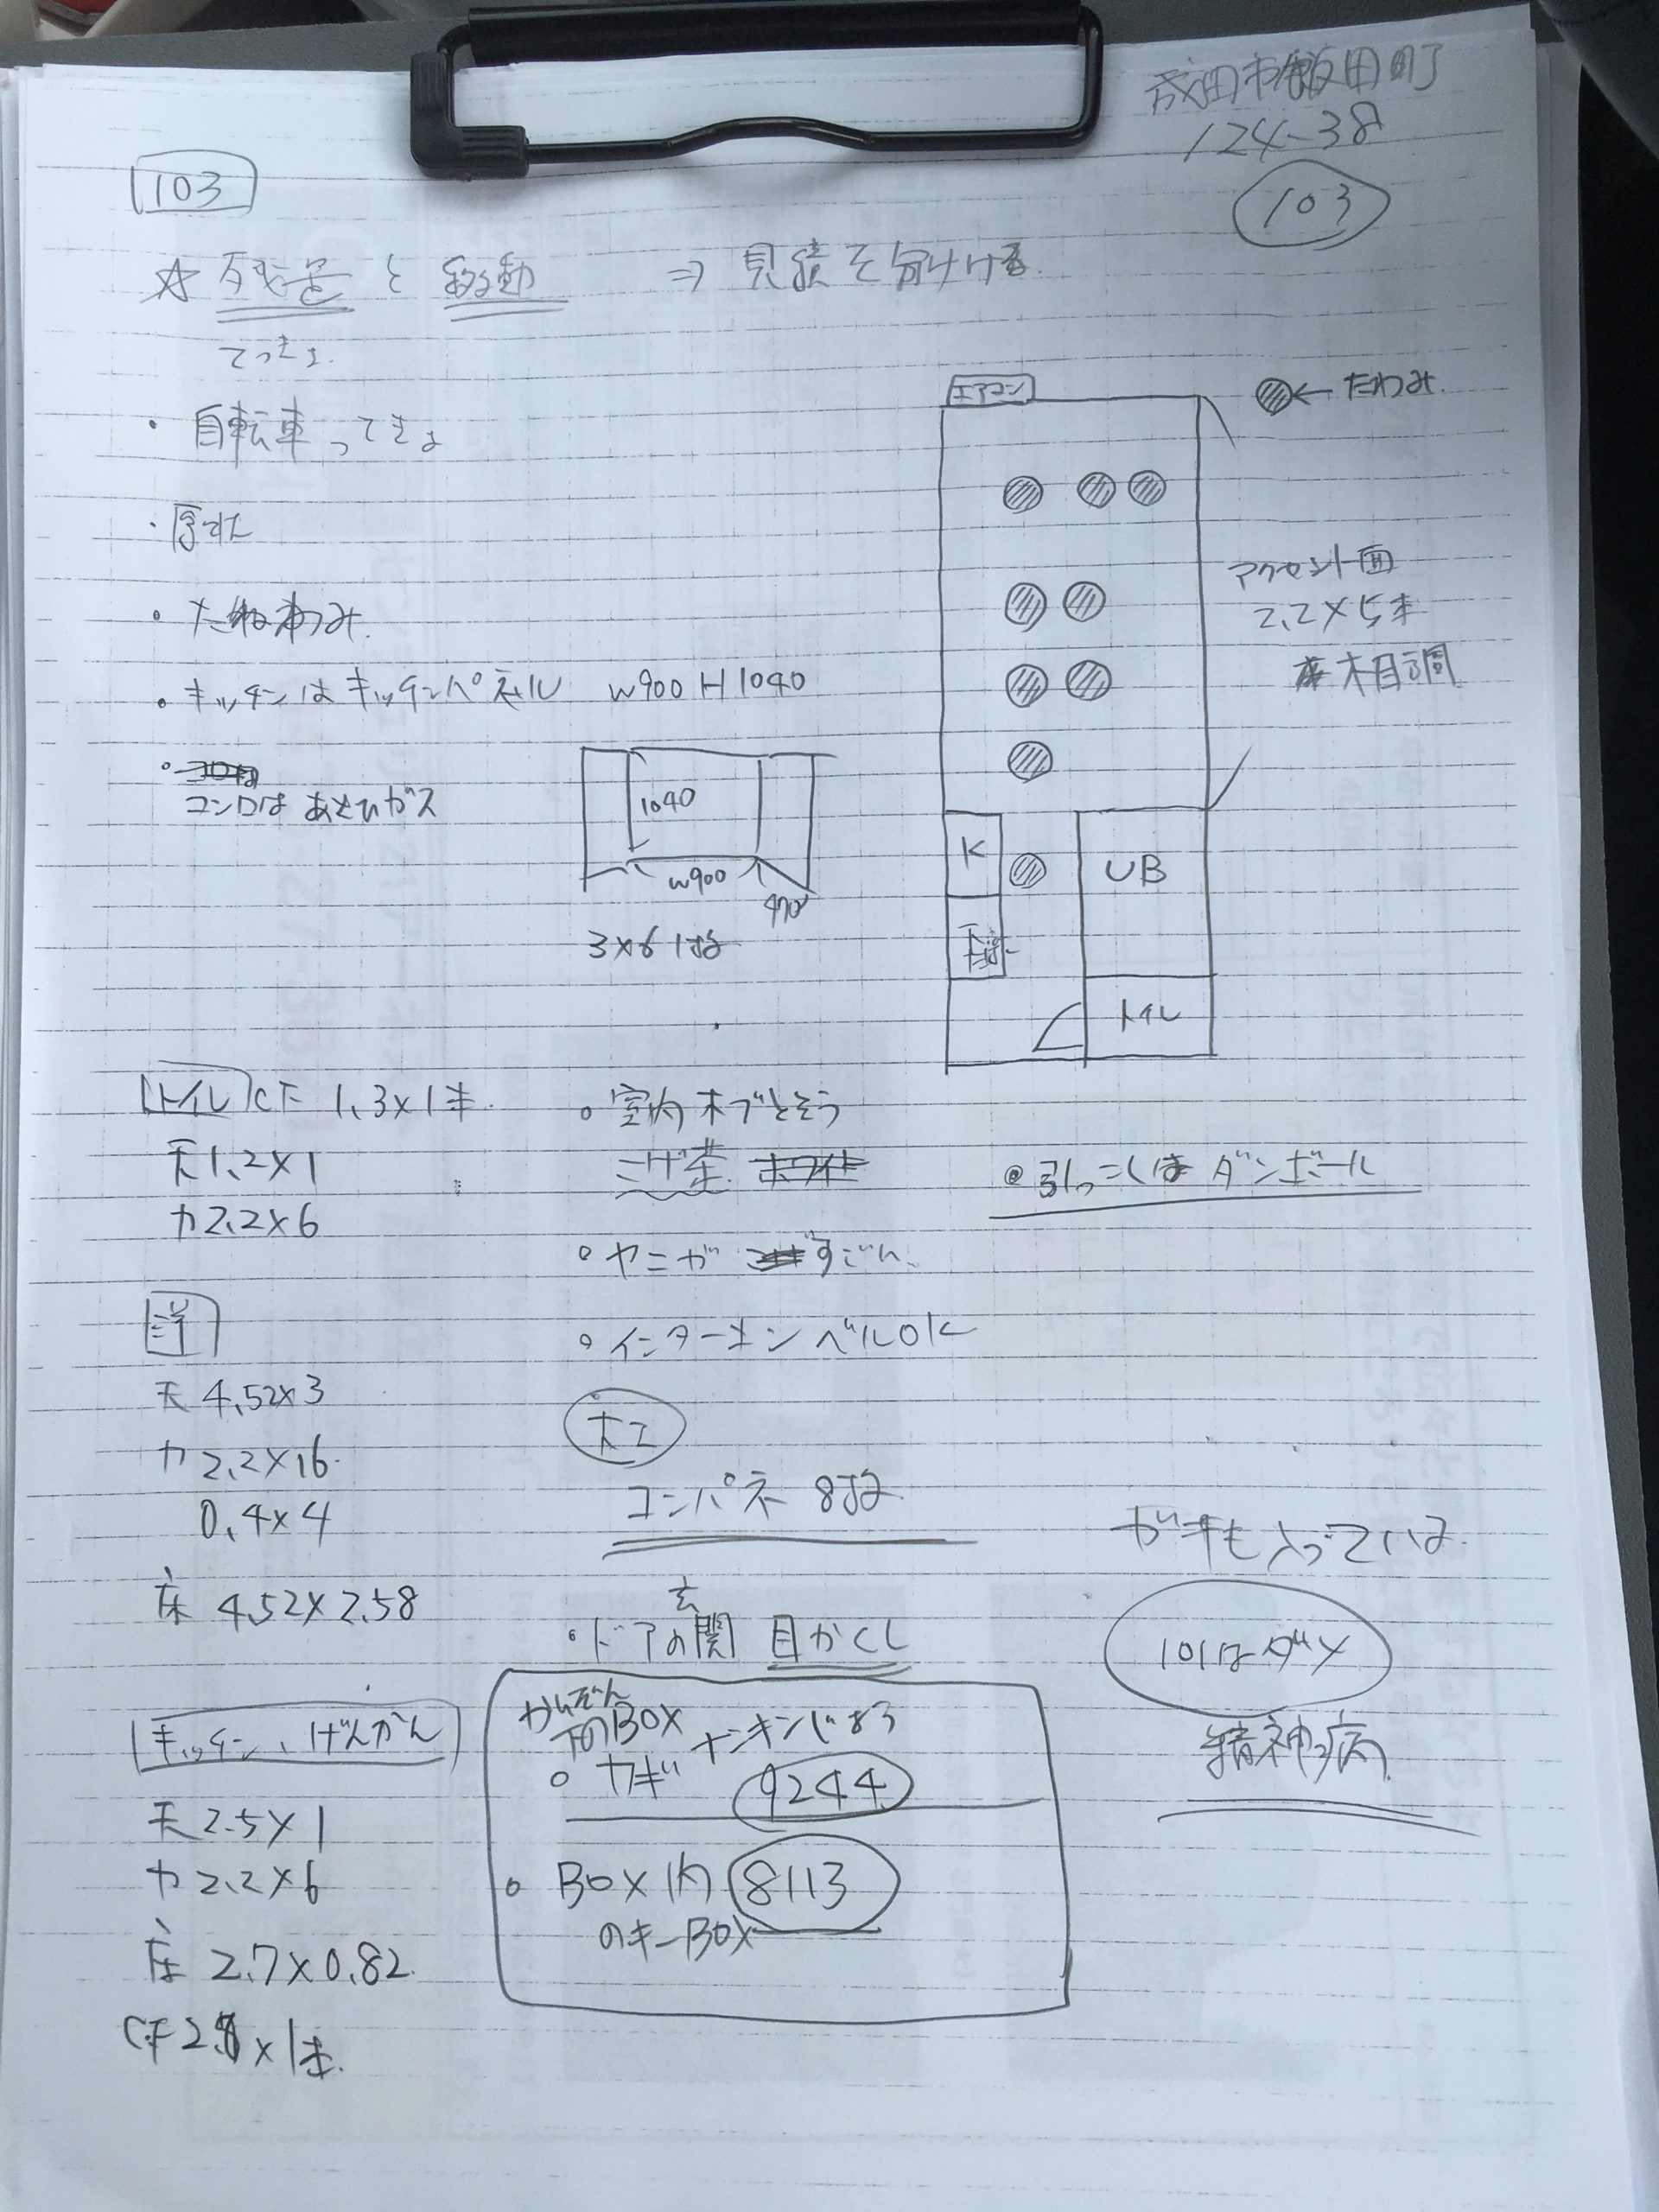 成田市飯田町
124-38
103
103
☆ 残置 と 移動 ⇒ 見積を分ける.
てっきょ.
・自転車てっきょ
エアコン
←たわみ.
・たわみ.
アクセント面
2.2×5本
木目調
・キッチンはキッチンパネル W900 H1040
・コンロは あさひガス
1040
W900
470
3×6 1枚
K
UB
トイレ
トイレ CF 1.3×1本.
天1.2×1
カ2.2×6
○室内木ブとそう
こげ茶.
◎引っこしはダンボール
○ヤニが すごい.
○インターホン ベルOK
洋
天 4.52×3
カ 2.2×16.
0.4×4
床 4.52×2.58
大工
コンパネ 8枚
ガキも入っている.
・ドアの玄関 目かくし
101はダメ
精神病
キッチン、げんかん
天2.5×1
カ2.2×6
床 2.7×0.82.
CF 2. ×1本.
かいだん
下のBOX
○カギ ナンキンじょう
9244
○BOX内 8113
のキーBOX